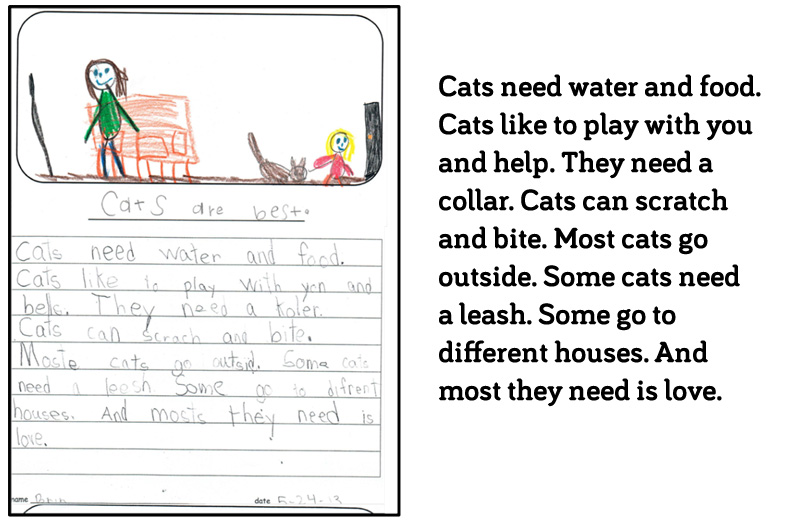 Cats are best.
Cats need water and food.
Cats like to play with you and
bells. They need a koler.
Cats can scrach and bite.
Moste cats go outsid. Some cats
need a leesh Some go to difrent
houses. And mosts they need is
love.
name
date 5-24-13
Cats need water and food.
Cats like to play with you
and help. They need a
collar. Cats can scratch
and bite. Most cats go
outside. Some cats need
a leash. Some go to
different houses. And
most they need is love.